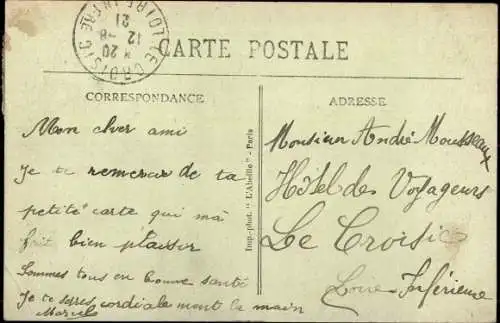 CARTE POSTALE
LE CROISIC
LOIRE INFRE
20
12 -8
21
CORRESPONDANCE
Mon cher ami
Je te remercie de ta
petite carte qui m'a
fait bien plaisir
Sommes tous en bonne santé
Je te serres cordialement la main
Marcel
Imp.-phot. "L'Abeille" - Paris
ADRESSE
Monsieur André Mousseaux
Hôtel des Voyageurs
Le Croisic
Loire Inférieure